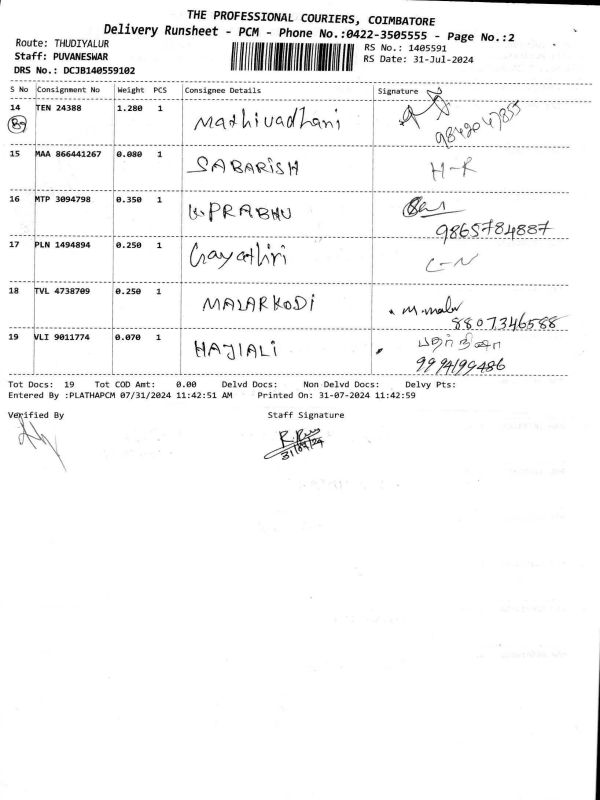 THE PROFESSIONAL COURIERS, COIMBATORE
Delivery Runsheet - PCM - Phone No.:0422-3505555 - Page No.:2
Route: THUDIYALUR
RS No.: 1405591
Staff: PUVANESWAR
RS Date: 31-Jul-2024
DRS No.: DCJB140559102
S No Consignment No Weight PCS Consignee Details Signature
14 TEN 24388 1.280 1 Mathivadhani 9842047855
15 MAA 866441267 0.080 1 SABARISH H-R
16 MTP 3094798 0.350 1 PRABHU
9865784887
17 PLN 1494894 0.250 1 Gayathiri C-N
18 TVL 4738709 0.250 1 MALARKODI M.malar
8807346588
19 VLI 9011774 0.070 1 HAJIALI
9994199486
Tot Docs: 19 Tot COD Amt: 0.00 Delvd Docs: Non Delvd Docs: Delvy Pts:
Entered By :PLATHAPCM 07/31/2024 11:42:51 AM Printed On: 31-07-2024 11:42:59
Verified By Staff Signature